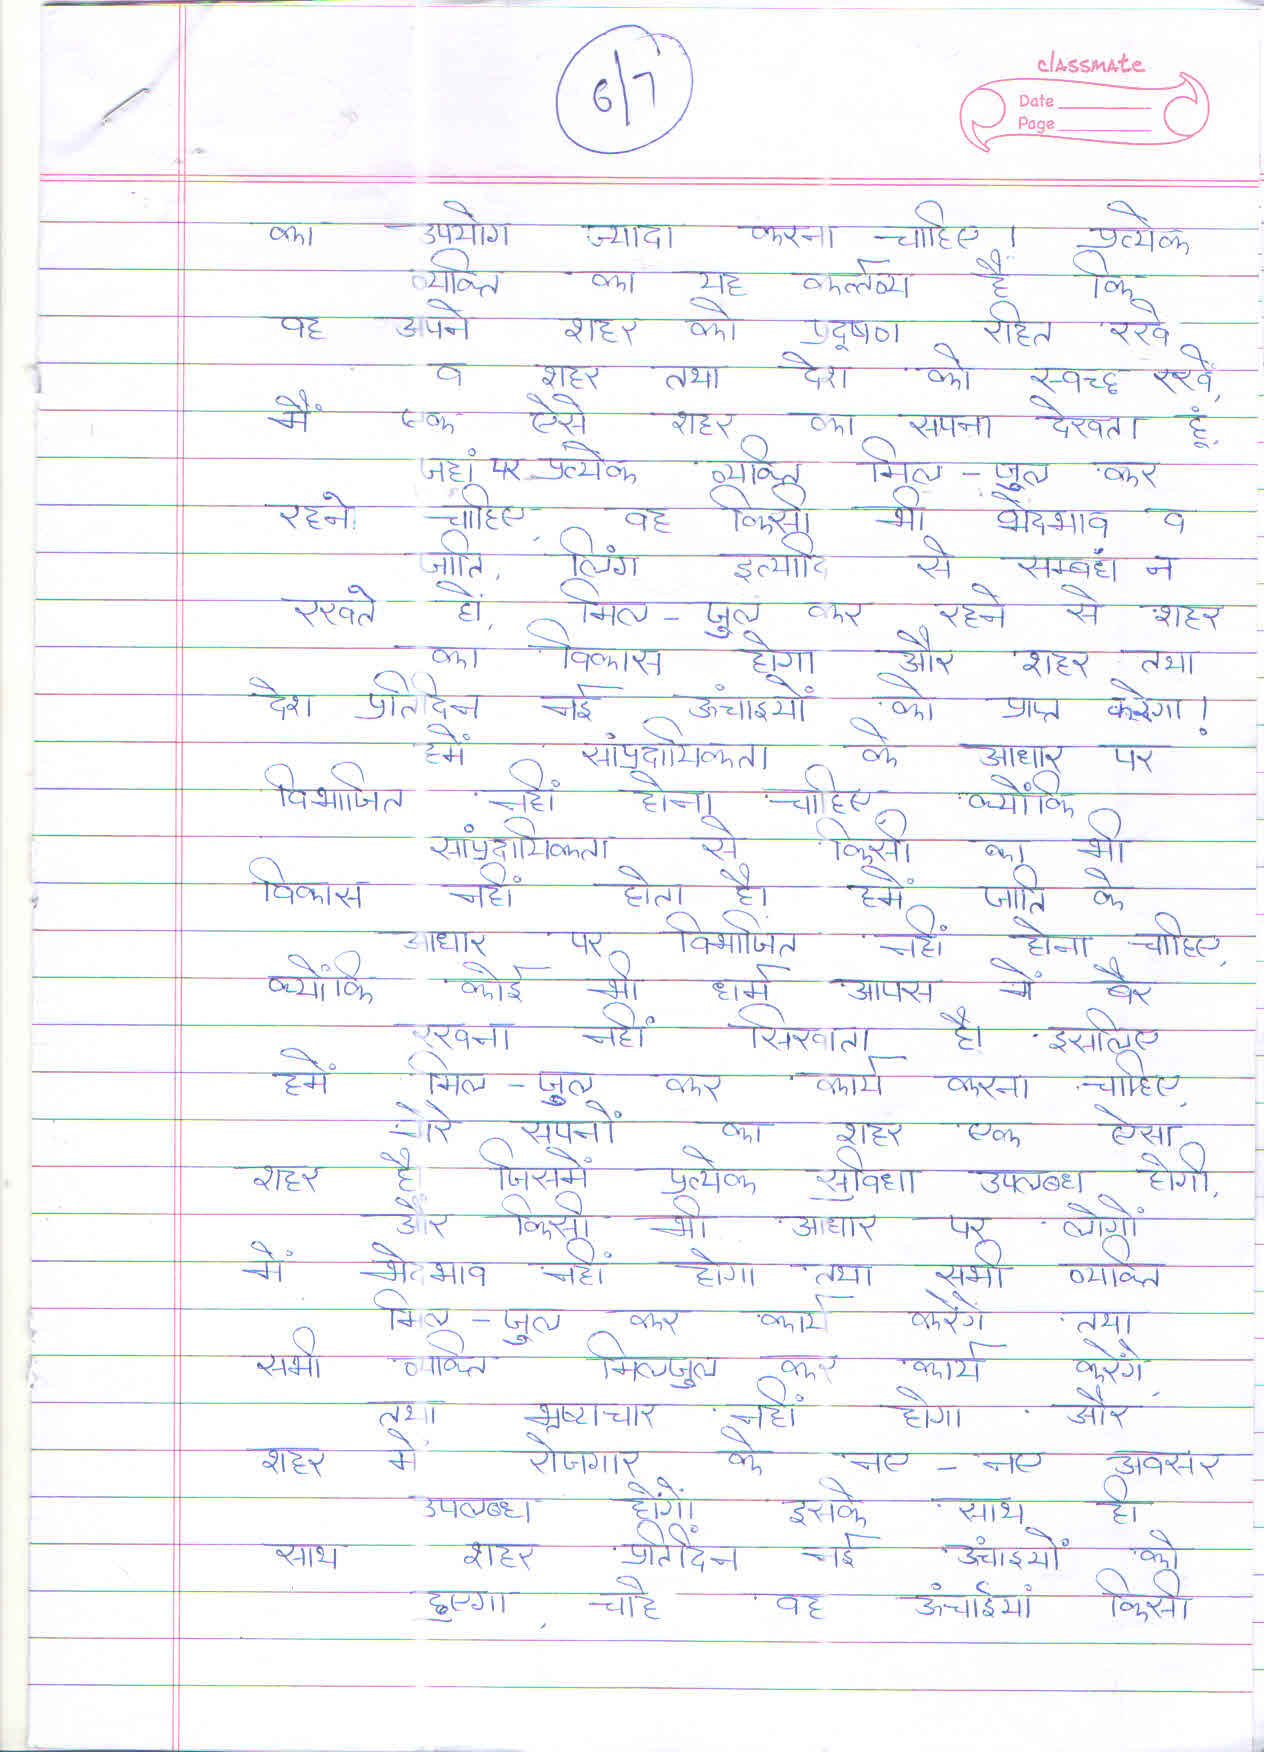 6/7
classmate
Date
Page
का उपयोग ज्यादा करना चाहिए। प्रत्येक
व्यक्ति का यह कर्त्तव्य है कि
वह अपने शहर को प्रदूषण रहित रखे
व शहर तथा देश को स्वच्छ रखें,
मैं एक ऐसे शहर का सपना देखता हूं,
जहां पर प्रत्येक व्यक्ति मिल-जुल कर
रहने चाहिए, वह किसी भी भेदभाव व
जाति, लिंग इत्यादि से सम्बंध न
रखते हों, मिल-जुल कर रहने से शहर
का विकास होगा और शहर तथा
देश प्रतिदिन नई ऊंचाइयों को प्राप्त करेगा!
हमें सांप्रदायिकता के आधार पर
विभाजित नहीं होना चाहिए क्योंकि
सांप्रदायिकता से किसी का भी
विकास नहीं होता है। हमें जाति के
आधार पर विभाजित नहीं होना चाहिए,
क्योंकि कोई भी धर्म आपस में बैर
रखना नहीं सिखाता है। इसलिए
हमें मिल-जुल कर कार्य करना चाहिए,
मेरे सपनों का शहर एक ऐसा
शहर है। जिसमें प्रत्येक सुविधा उपलब्ध होगी,
और किसी भी आधार पर लोगों
में भेदभाव नहीं होगा तथा सभी व्यक्ति
मिल-जुल कर कार्य करेंगे तथा
सभी व्यक्ति मिलजुल कर कार्य करेंगे,
तथा भ्रष्टाचार नहीं होगा और
शहर में रोजगार के नए-नए अवसर
उपलब्ध होंगें। इसके साथ ही
साथ शहर प्रतिदिन नई ऊंचाइयों को
छुएगा, चाहे वह ऊंचाईयां किसी